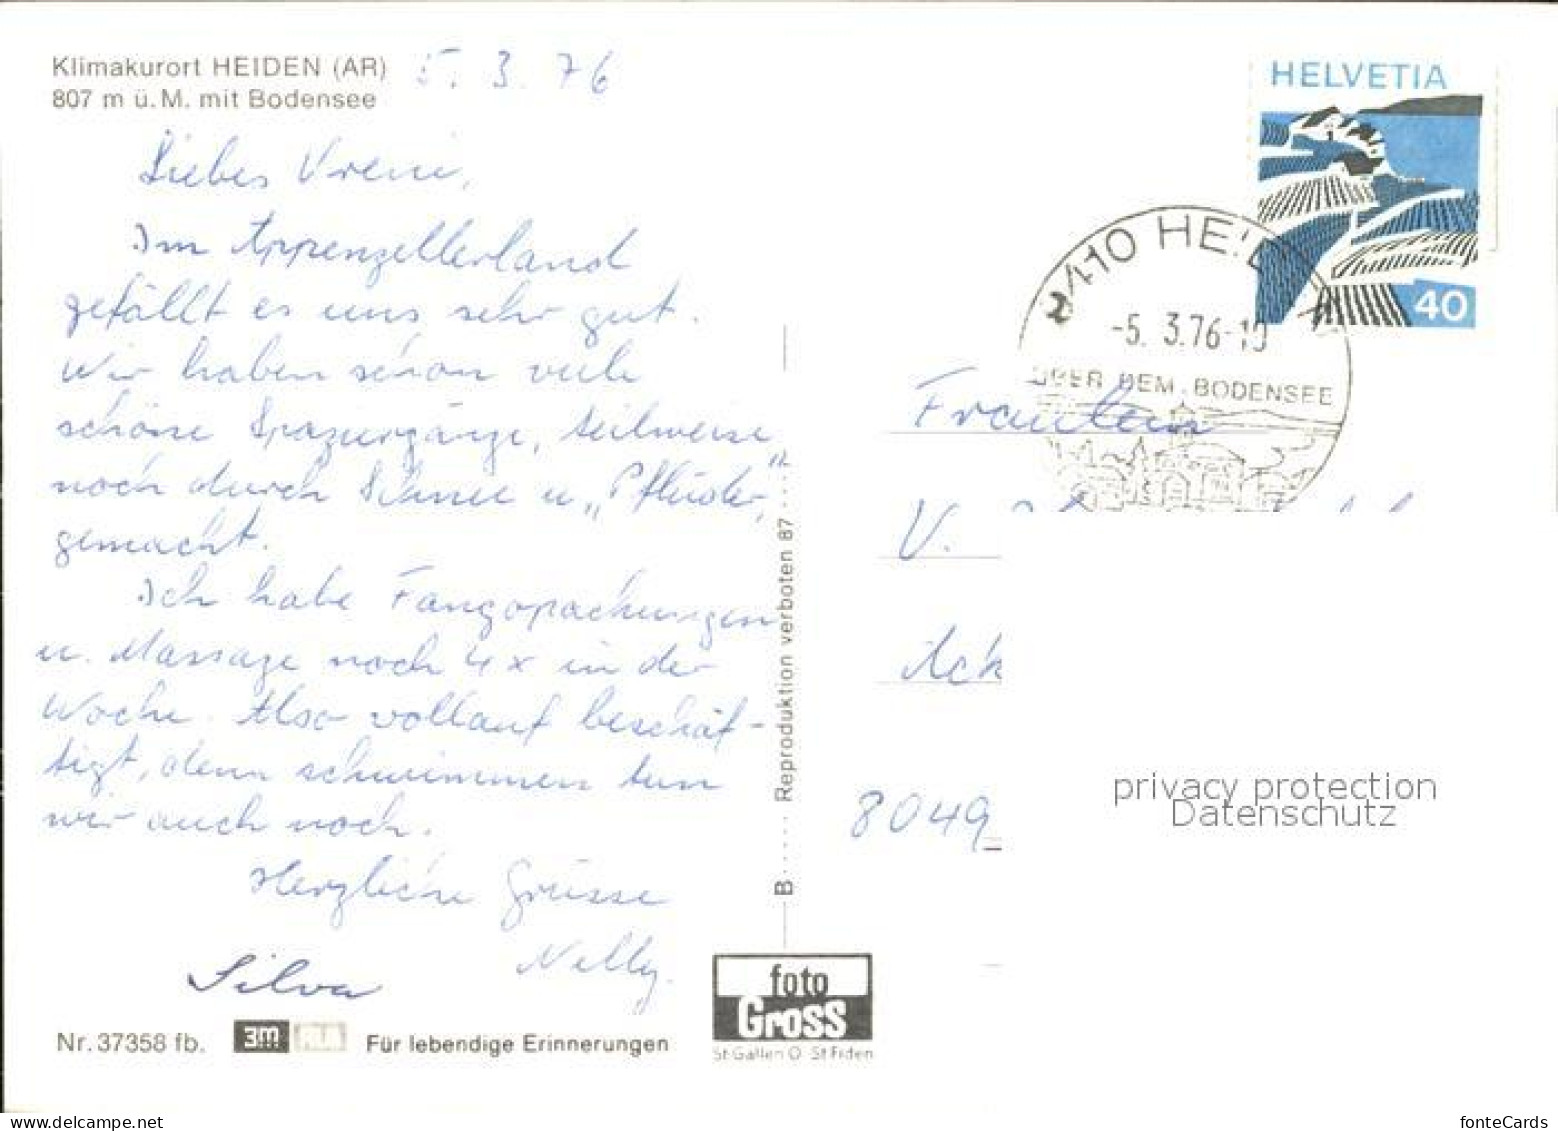 Klimakurort HEIDEN (AR)
807 m ü. M. mit Bodensee
5. 3. 76
Liebes Vreni,
Im Appenzellerland
gefällt es uns sehr gut.
Wir haben schon viele
schöne Spaziergänge, teilweise
noch durch Schnee u. „Pflüder"
gemacht.
Ich habe Fangopackungen
u. Massage noch 4x in der
Woche. Also vollauf beschäf-
tigt, denn schwimmen tun
wir auch noch.
Herzliche Grüsse
Nelly.
Silva
Nr. 37358 fb.
3m
Für lebendige Erinnerungen
B ..... Reproduktion verboten 87 ....
foto
Gross
St Gallen O - St Fiden
HELVETIA
40
9410 HEIDEN
-5. 3.76-10
ÜBER DEM BODENSEE
Fräulein
V.
Ack
8049
privacy protection
Datenschutz
www.ansichtskartenversand.com
fonteCards